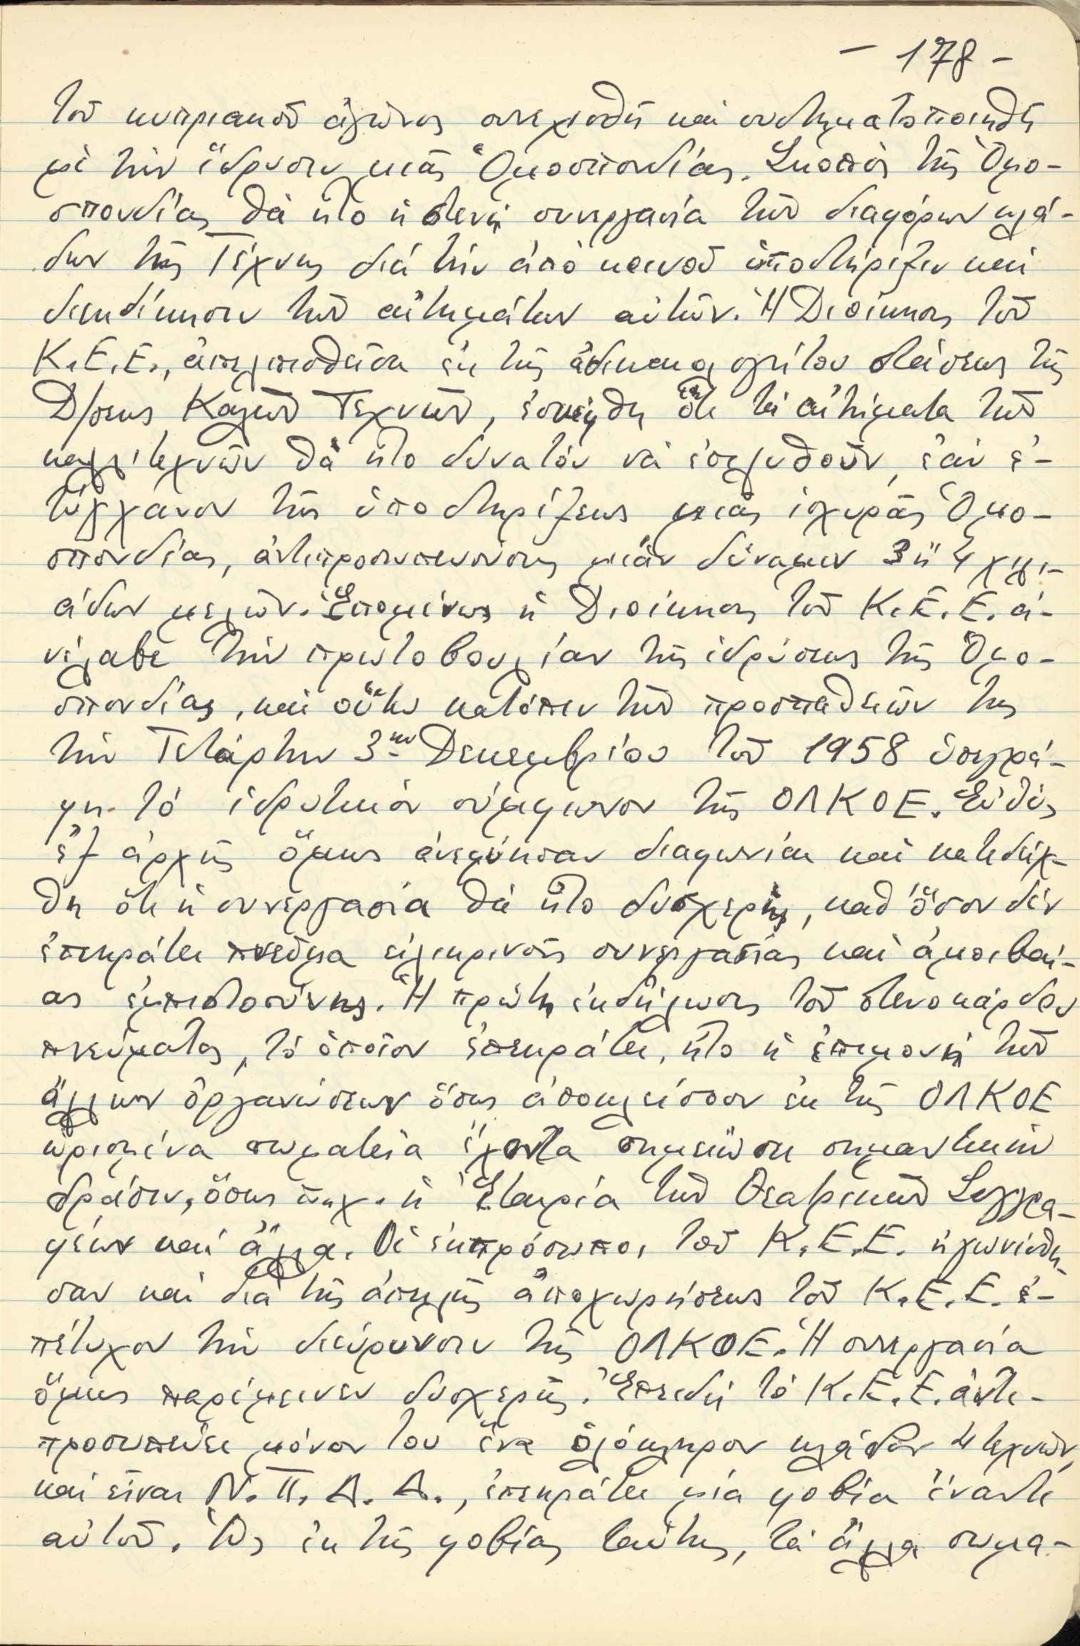 — 178 —
τοῦ κυπριακοῦ ἀγῶνος συνεχισθῇ καὶ συστηματοποιηθῇ
μὲ τὴν ἵδρυσιν μιᾶς Ὁμοσπονδίας. Σκοπὸς τῆς Ὁμο-
σπονδίας θὰ ἦτο ἡ στενὴ συνεργασία τῶν διαφόρων κλά-
δων τῆς Τέχνης διὰ τὴν ἀπὸ κοινοῦ ὑποστήριξιν καὶ
διεκδίκησιν τῶν αἰτημάτων αὐτῶν. Ἡ Διοίκησις τοῦ
Κ.Ε.Ε., ἀπελπισθεῖσα ἐκ τῆς ἀδικαιολογήτου στάσεως τῆς
Δ/σεως Καλῶν Τεχνῶν, ἐσκέφθη ὅτι τὰ αἰτήματα τῶν
καλλιτεχνῶν θὰ ἦτο δυνατὸν νὰ ἐπιλυθοῦν, ἐὰν ἐ-
τύγχανον τῆς ὑποστηρίξεως μιᾶς ἰσχυρᾶς Ὁμο-
σπονδίας, ἀντιπροσωπευούσης μίαν δύναμιν 3 ἢ 4 χιλι-
άδων μελῶν. Ἑπομένως ἡ Διοίκησις τοῦ Κ.Ε.Ε. ἀ-
νέλαβε τὴν πρωτοβουλίαν τῆς ἱδρύσεως τῆς Ὁμο-
σπονδίας, καὶ οὕτω κατόπιν τῶν προσπαθειῶν της
τὴν Τετάρτην 3ην Δεκεμβρίου τοῦ 1958 ὑπεγρά-
φη τὸ ἱδρυτικὸν σύμφωνον τῆς ΟΛΚΟΕ. Εὐθὺς
ἐξ ἀρχῆς ὅμως ἀνεφύησαν διαφωνίαι καὶ κατεδείχ-
θη ὅτι ἡ συνεργασία θὰ ἦτο δυσχερὴς, καθ' ὅσον δὲν
ἐπικράτει πνεῦμα εἰλικρινοῦς συνεργασίας καὶ ἀμοιβαί-
ας ἐμπιστοσύνης. Ἡ πρώτη ἐκδήλωσις τοῦ στενοκάρδου
πνεύματος, τὸ ὁποῖον ἐπεκράτει, ἦτο ἡ ἐπιμονὴ τῶν
ἄλλων ὀργανώσεων ὅπως ἀποκλείσουν ἐκ τῆς ΟΛΚΟΕ
ὡρισμένα σωματεῖα ἔχοντα σημειώσει σημαντικὴν
δρᾶσιν, ὅπως π.χ. ἡ Ἑταιρία τῶν Θεατρικῶν Συγγρα-
φέων καὶ ἄλλα. Οἱ ἐκπρόσωποι τοῦ Κ.Ε.Ε. ἠγωνίσθη-
σαν καὶ διὰ τῆς ἀπειλῆς ἀποχωρήσεως τοῦ Κ.Ε.Ε. ἐ-
πέτυχον τὴν διεύρυνσιν τῆς ΟΛΚΟΕ. Ἡ συνεργασία
ὅμως παρέμεινεν δυσχερὴς. Ἐπειδὴ τὸ Κ.Ε.Ε. ἀντι-
προσωπεύει μόνον του ἕνα ὁλόκληρον κλάδον τεχνῶν,
καὶ εἶναι Ν.Π.Δ.Δ., ἐπεκράτει μία φοβία ἔναντι
αὐτοῦ. Ὡς ἐκ τῆς φοβίας ταύτης, τὰ ἄλλα σωμα-